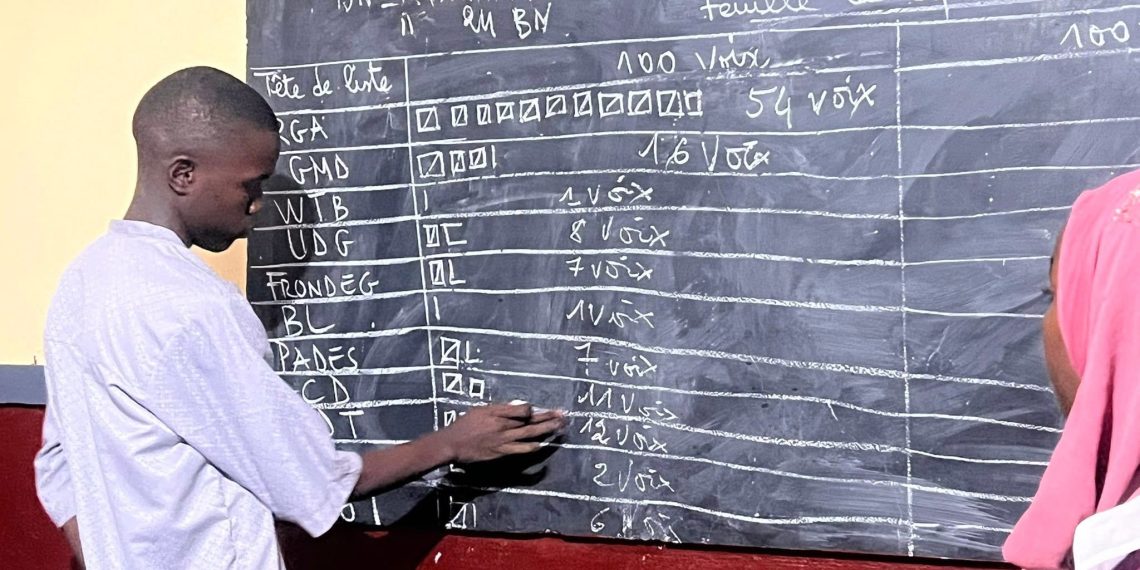 n° 24 BN
Tête de liste 100 Voix 100
RGA 54 voix
GMD 16 Voix
WTB 1 voix
UDG 8 Voix
FRONDEG 7 voix
BL 1 Voix
PADES 7 voix
CD 11 Voix
DT 12 Voix
2 Voix
6 Voix